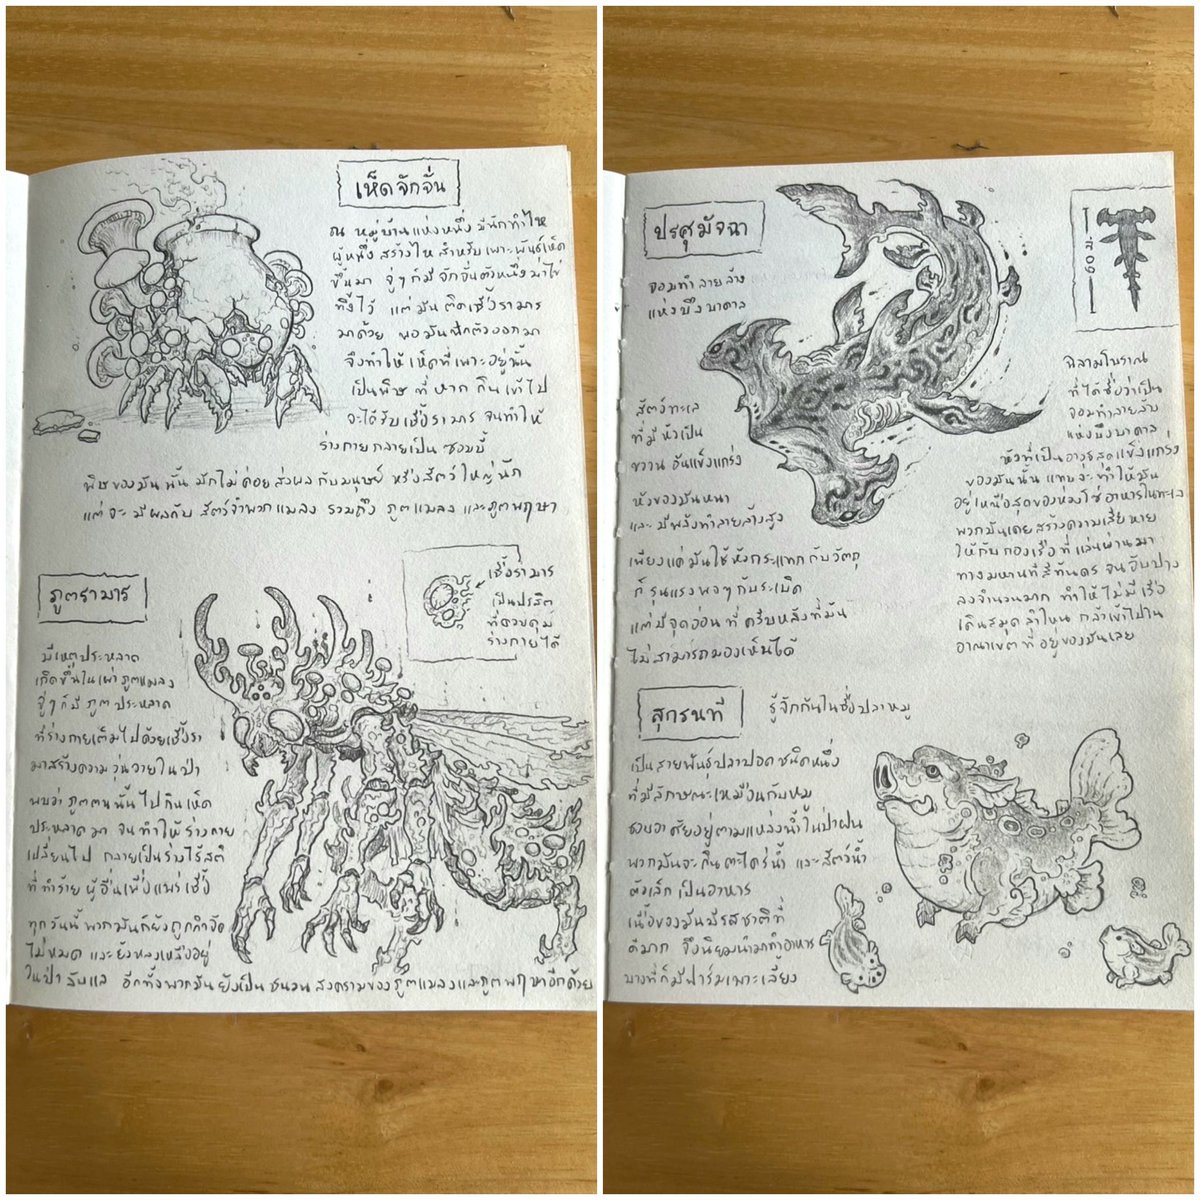 เห็ดจักจั่น
ณ หมู่บ้านแห่งหนึ่ง มีนักทำไห
ผู้หนึ่งสร้างไห สำหรับเพาะพันธุ์เห็ด
ขึ้นมา จู่ๆ ก็มีจักจั่นตัวหนึ่งมาไข่
ทิ้งไว้ แต่มันติดเชื้อรามาร
มาด้วย พอมันฟักตัวออกมา
จึงทำให้เห็ดที่เพาะอยู่นั้น
เป็นพิษ ที่หากกินเข้าไป
จะได้รับเชื้อรามาร จนทำให้
ร่างกายกลายเป็น ซอมบี้
พิษของมันนั้น มักไม่ค่อยส่งผลกับมนุษย์ หรือสัตว์ใหญ่นัก
แต่จะมีผลกับ สัตว์จำพวกแมลง รวมถึง ภูตแมลง และภูตพฤษา
ภูตรามาร
เชื้อรามาร
เป็นปรสิต
ที่ควบคุม
ร่างกายได้
มีเหตุประหลาด
เกิดขึ้นในเผ่าภูตแมลง
จู่ๆ ก็มี ภูตประหลาด
ที่ร่างกายเต็มไปด้วยเชื้อรา
มาสร้างความวุ่นวายในป่า
พบว่า ภูตตนนั้นไปกินเห็ด
ประหลาดมา จนทำให้ร่างกาย
เปลี่ยนไป กลายเป็นร่างไร้สติ
ที่ทำร้าย ผู้อื่นเพื่อแพร่เชื้อ
ทุกวันนี้ พวกมันก็ยังถูกกำจัด
ไม่หมด และยังหลงเหลืออยู่
ในป่าลับแล อีกทั้งพวกมันยังเป็นชนวนสงครามของภูตแมลงและภูตพฤษาอีกด้วย
ปรศุมัจฉา
จอมทำลายล้าง
แห่งบึงบาดาล
60 ม.
สัตว์ทะเล
ที่มีหัวเป็น
ขวาน อันแข็งแกร่ง
หัวของมันหนา
และมีพลังทำลายล้างสูง
เพียงแค่มันใช้หัวกระแทกกับวัตถุ
ก็รุนแรงพอๆ กับระเบิด
แต่มีจุดอ่อนที่ครีบหลังที่มัน
ไม่สามารถมองเห็นได้
ฉลามโบราณ
ที่ได้ชื่อว่าเป็น
จอมทำลายล้าง
แห่งบึงบาดาล
หัวที่เป็นอาวุธสุดแข็งแกร่ง
ของมันนั้น แทบจะทำให้มัน
อยู่เหนือสุดของห่วงโซ่อาหารในทะเล
พวกมันเคยสร้างความเสียหาย
ให้กับกองเรือที่แล่นผ่านมา
ทางมหานทีสีทันดร จนอับปาง
ลงจำนวนมาก ทำให้ไม่มีเรือ
เดินสมุดลำไหน กล้าเข้าไปใน
อาณาเขตที่อยู่ของมันเลย
สุกรนที
รู้จักกันในชื่อปลาหมู
เป็นสายพันธุ์ปลาปอดชนิดหนึ่ง
ที่มีลักษณะเหมือนกับหมู
ชอบอาศัยอยู่ตามแหล่งน้ำในป่าฝน
พวกมันจะกินตะไคร่น้ำ และสัตว์น้ำ
ตัวเล็กเป็นอาหาร
เนื้อของมันมีรสชาติที่
ดีมาก จึงนิยมนำมาทำอาหาร
บางที่ก็มีฟาร์มเพาะเลี้ยง